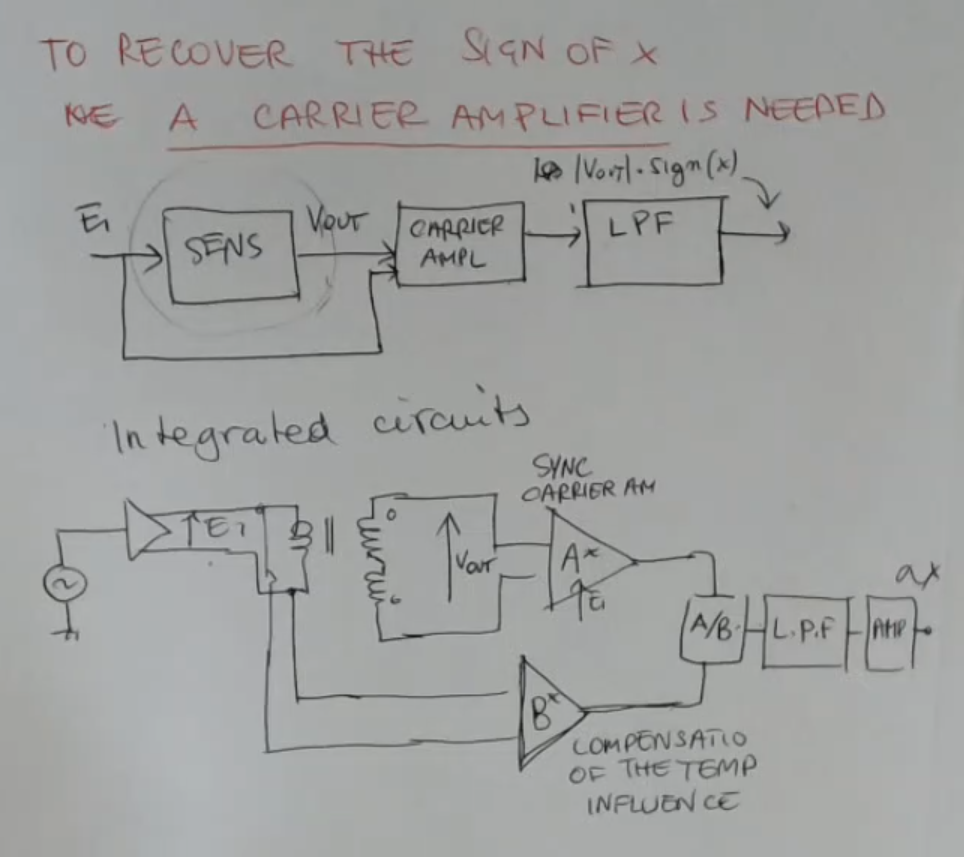 TO RECOVER THE SIGN OF X
A CARRIER AMPLIFIER IS NEEDED
|VOUT| · sign(x)
E1
SENS
VOUT
CARRIER
AMPL
LPF
Integrated circuits
SYNC
CARRIER AM
E1
VOUT
A*
E1
A/B
L.P.F
AMP
ax
B*
COMPENSATIO
OF THE TEMP
INFLUENCE